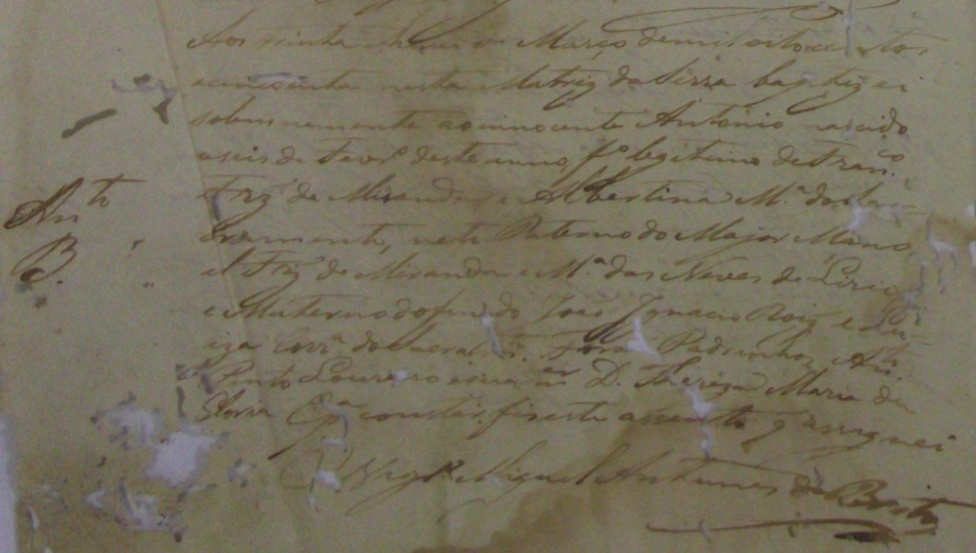 Aos trinta e hum de Março de mil oito centos
e cincoenta nesta Matriz da Serra baptizei
solemnemente ao innocente Antonio nascido
a seis de Fevr.º deste anno, f.º legitimo de Fran.co
Frz' de Miranda e Albertina M.ª do Sa-
Ant.o
cramento, neto Paterno do Major Mano
B.
el Frz' de Miranda e M.ª das Neves de Lirio
e Materno do fin do João Ignacio Roiz e Lu
iza do Forão Padrinhos
Pinto Loureiro e sua D. Thereza Maria da
E p.ª constar, fiz este assento q' assignei
O Vigr.º Miguel Antunes de Britto